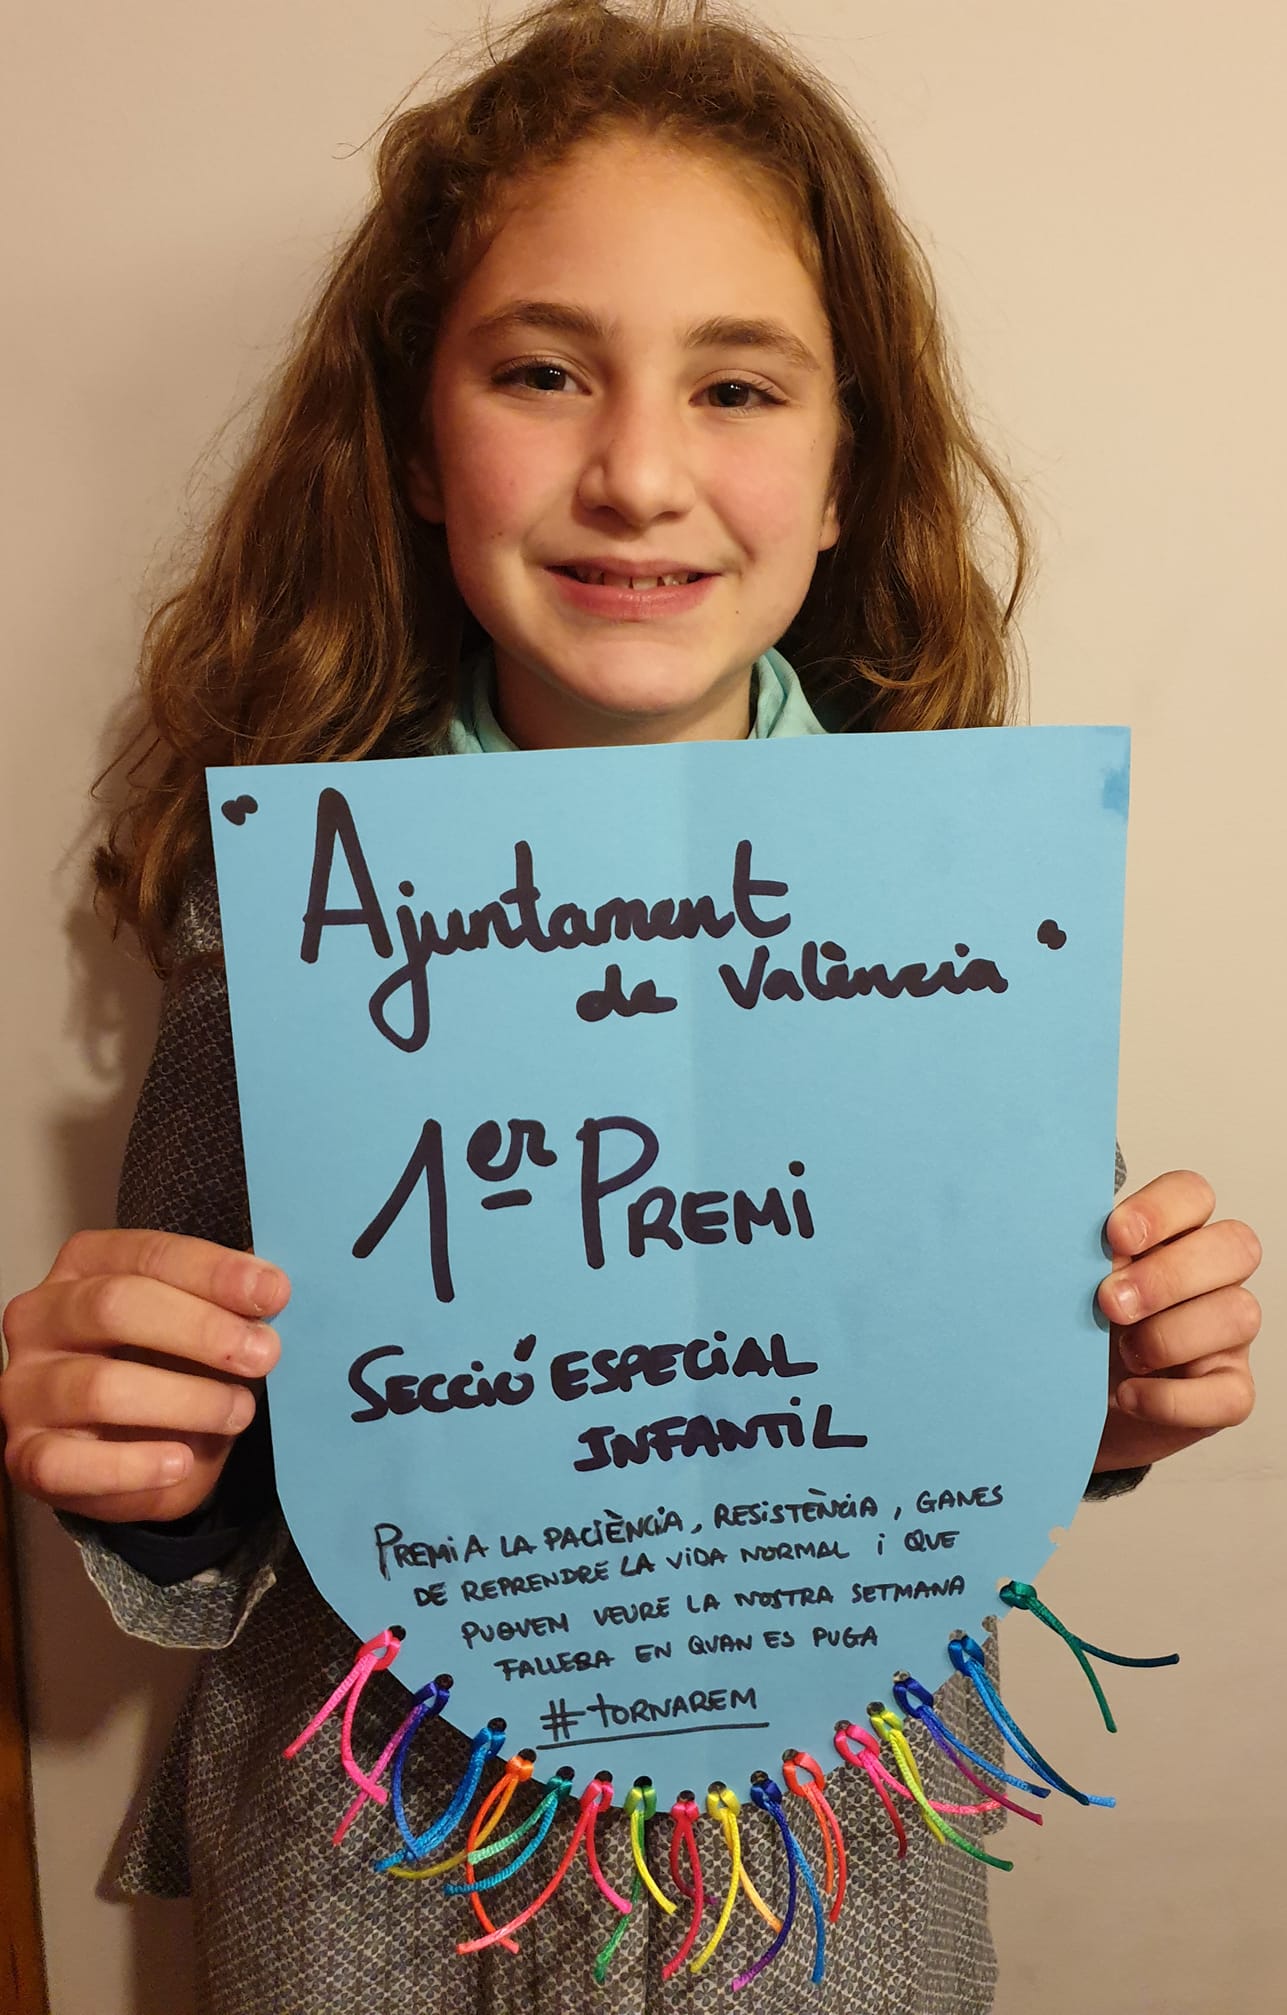 "Ajuntament
de València"
1er PREMI
SECCIÓ ESPECIAL
INFANTIL
PREMI A LA PACIÈNCIA, RESISTÈNCIA, GANES
DE REPRENDRE LA VIDA NORMAL i QUE
PUGUEM VEURE LA NOSTRA SETMANA
FALLERA EN QUAN ES PUGA
#TORNAREM